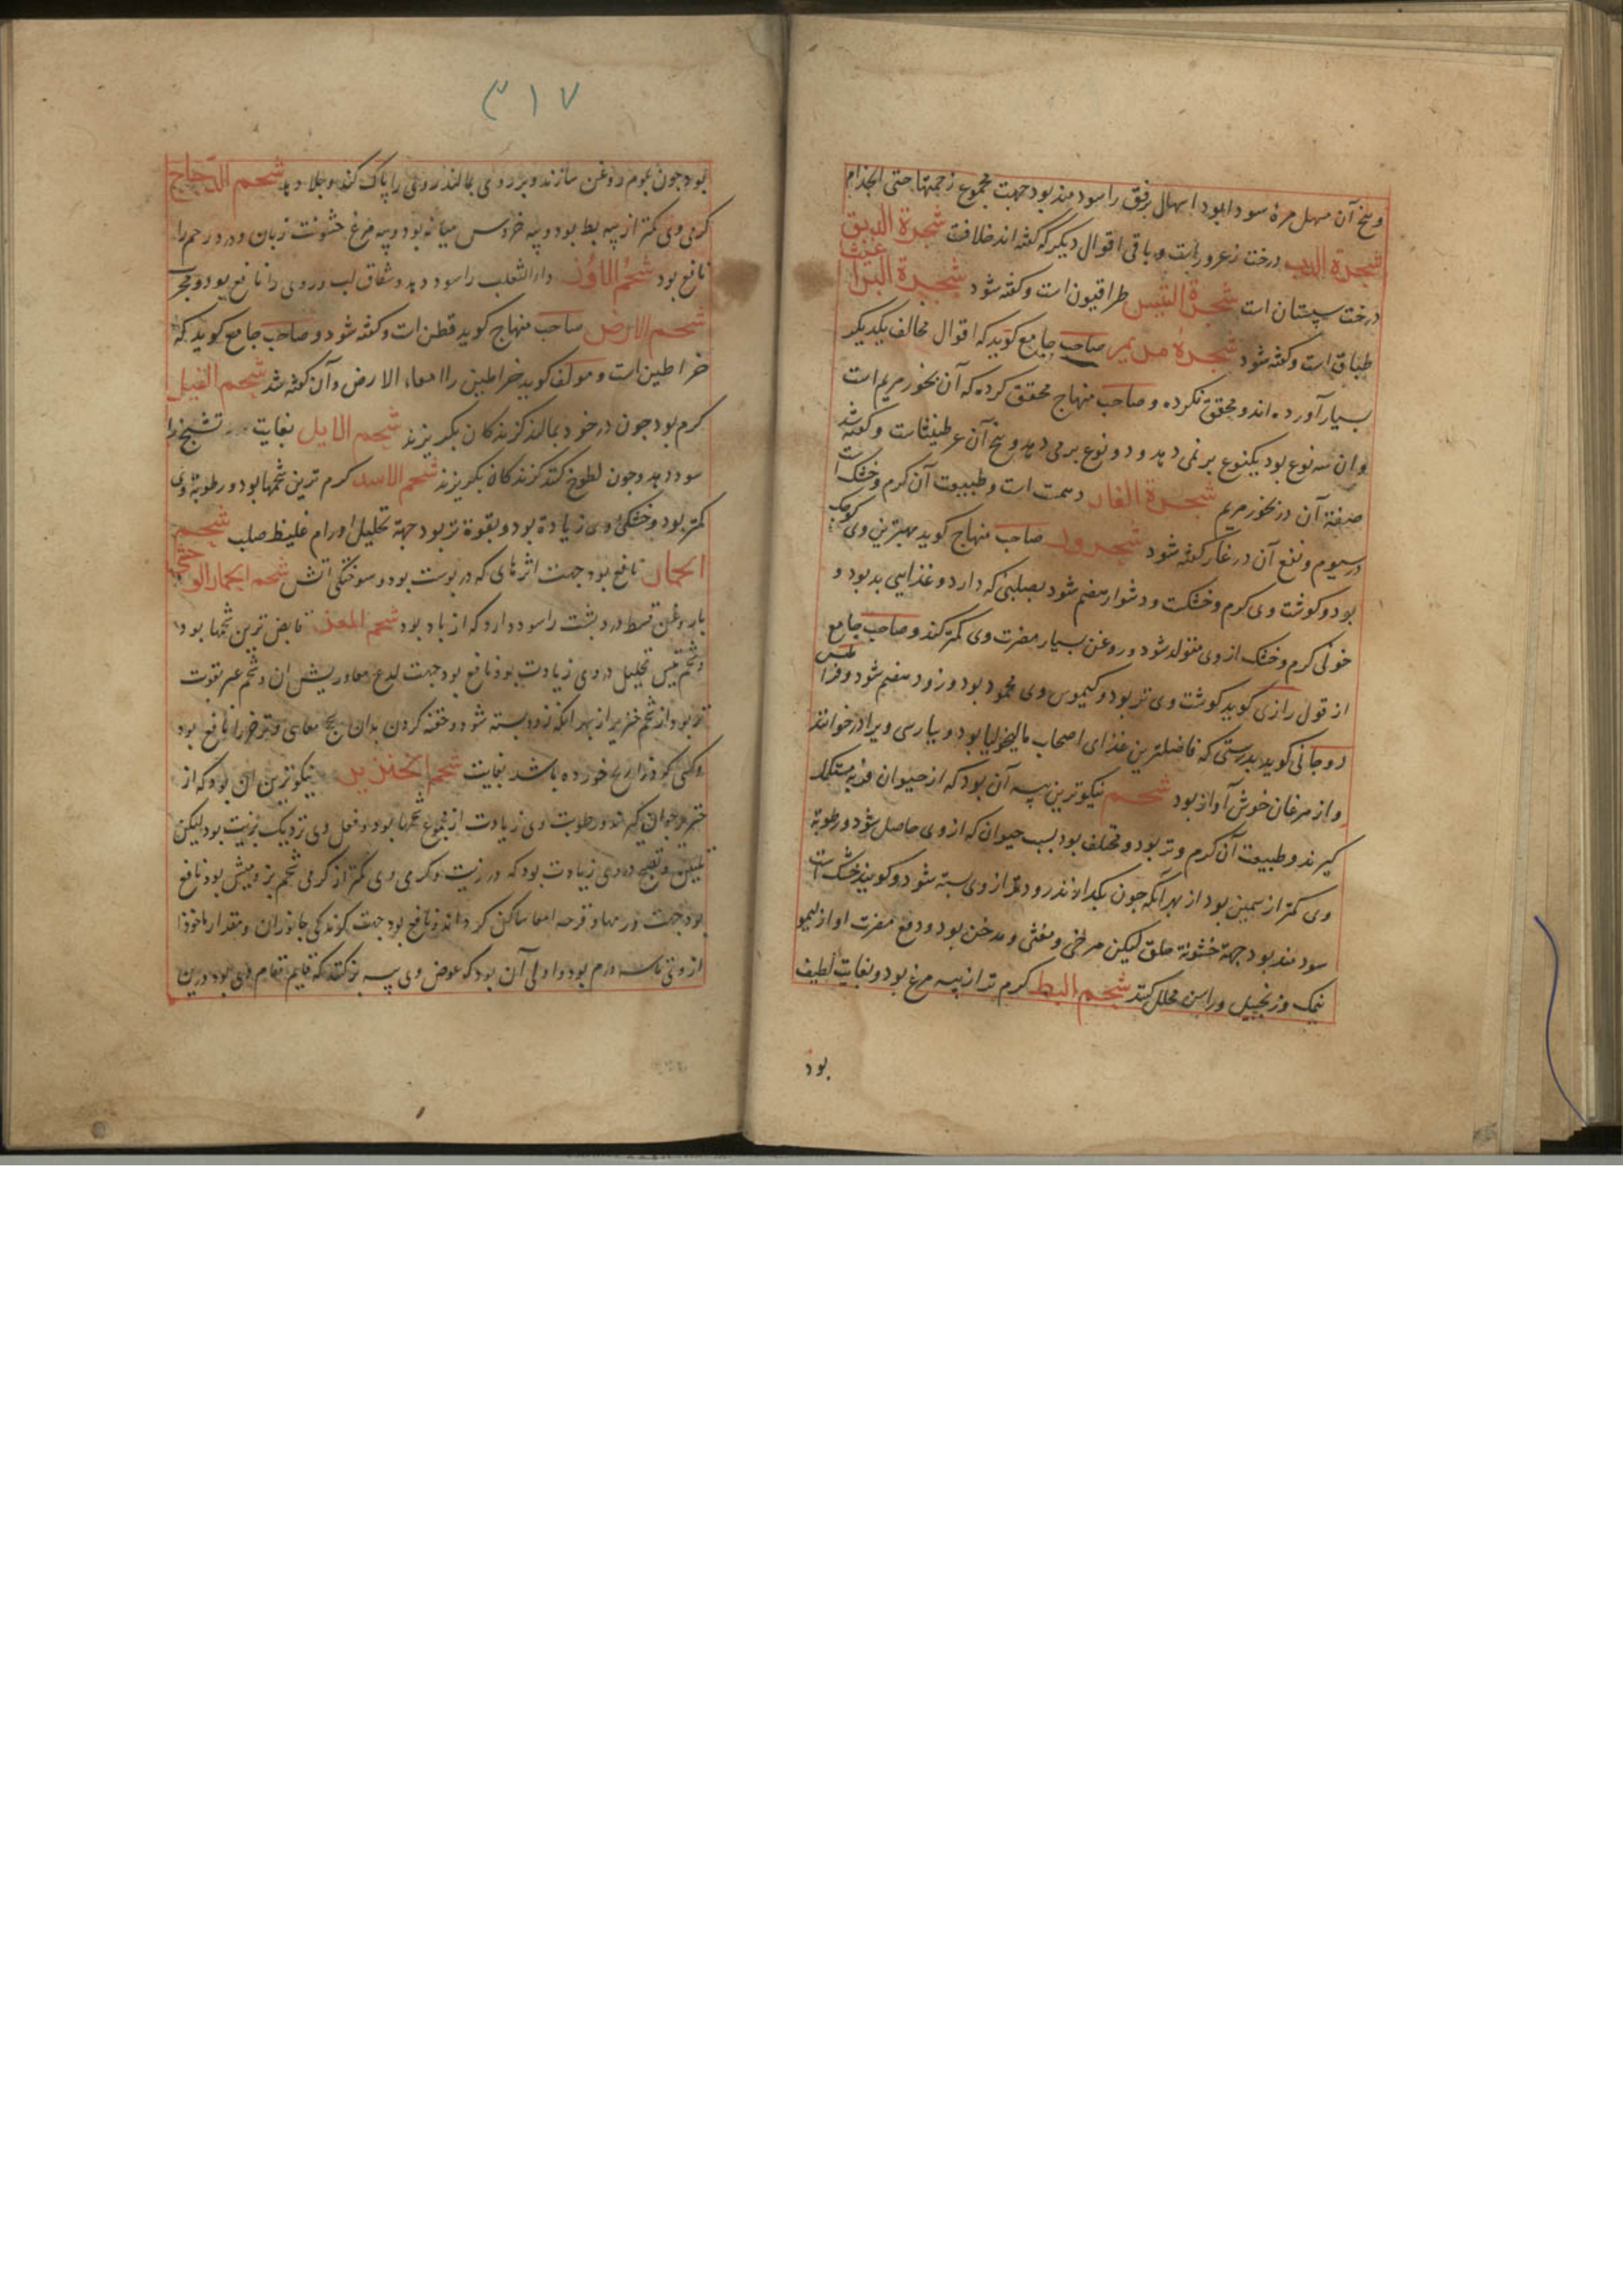 و بیخ آن مسهل مرهٔ سودا بود اسهال برفق را سودمند بود جهت مجموع زحمتها حتی الجذام
شجرة الدب درخت زعرور است و باقی اقوال دیگر که گفته اند خلافت شجرة الدبق
درخت سپستان است شجرة التیس طراقیون است و گفته شود شجرة البراغیث
طباق است و گفته شود شجرهٔ مریم صاحب جامع گوید که اقوال مخالف یکدیگر
بسیار آورده اند و محقق نکرده و صاحب منهاج محقق کرده که آن بخور مریم است
و ان سه نوع بود یکنوع بر نمی دهد و دو نوع بر می دهد و بیخ آن عرطنیثاست و گفته شد
صفة آن در بخور مریم شجرة الغار دهمست است و طبیعت آن گرم و خشک است
در سیوم و نفع آن در غار گفته شود صاحب منهاج گوید بهترین وی کوچک
بود و گوشت وی گرم و خشکست و دشوار هضم شود بصلبئی که دارد و غذایی بد بود و
خونی گرم و خشک از وی متولد شود و روغن بسیار مضرت وی کمتر کند و صاحب جامع
از قول رازی گوید گوشت وی تر بود و کیموس وی محمود بود و زود هضم شود و فراطیس
روحانی گوید بدرستی که فاضلترین غذای اصحاب مالیخولیا بود و بپارسی ویرا در خوانند
و از مرغان خوش آواز بود شحم نیکوترین پیه آن بود که از حیوان فربه مستکمل
گیرند و طبیعت آن گرم و تر بود و مختلف بود بسبب حیوان که از وی حاصل شود و رطوبة
وی کمتر از سمین بود از بهر آنکه چون بگدازند زودتر از وی بسته شود و گویند خشک است
سودمند بود جهة خشونة حلق لیکن مرخی و مغثی و مدخن بود و دفع مضرت او از لیمو
نمک و زنجبیل و راسن مخلل کنند شحم البط گرم تر از پیه مرغ بود و بغایت لطیف
بود
۳۱۷
بود چون بموم روغن سازند و بر روی بمالند روی را پاک کند و جلا دهد شحم الدجاج
گرمی وی کمتر از پیه بط بود و پیه خروس میانه بود و پیه مرغ خشونت زبان و درد رحم را
نافع بود شحم الاوز داء الثعلب را سود دهد و شقاق لب و روی را نافع بود و مجرب
شحم الارض صاحب منهاج گوید قطن است و گفته شود و صاحب جامع گوید که
خراطین است و مولف گوید خراطین را امعاء الارض و آن گفته شد شحم الفیل
گرم بود چون در خود بمالند گزندگان بگریزند شحم الایل بغایت تشنج را
سود دهد و چون لطوخ کنند گزندگان بگریزند شحم الاسد گرم ترین شحمها بود و رطوبة وی
کمتر بود و خشکی وی زیادة بود و بقوة تر بود جهة تحلیل اورام غلیظ صلب شحم
الحمار نافع بود جهت اثرهای که در پوست بود و سوختگی آتش شحم الحمار الوحشی
با روغن قسط درد پشت را سود دارد که از باد بود شحم المعز قابض ترین شحمها بود
و شحم تیس تحلیل در وی زیادت بود و نافع بود جهت لدغ امعا و ریش ان و شحم عنز بقوت
تر بود از شحم خنزیر از بهر آنکه زود بسته شود و حقنه کردن بدان سحج معایی و نافع بود
و کسی که ذراریح خورده باشد بغایت شحم الخنزیر نیکوترین ان بود که از
خنزیر جوان گیرند و رطوبت وی زیادت از مجموع شحمها بود و فعل وی نزدیک بزیت بود لیکن
تلیین و نضج در وی زیادت بود که در زیت و گرمی وی کمتر از گرمی شحم بز و میش بود نافع
بود جهت ورمها و قرحه امعا ساکن گرداند و نافع بود جهت گزندگی جانوران و مقدار ماخوذ
از وی تا سه درم بود و اولی آن بود که عوض وی پیه بز کنند که قایم مقام وی بود درین